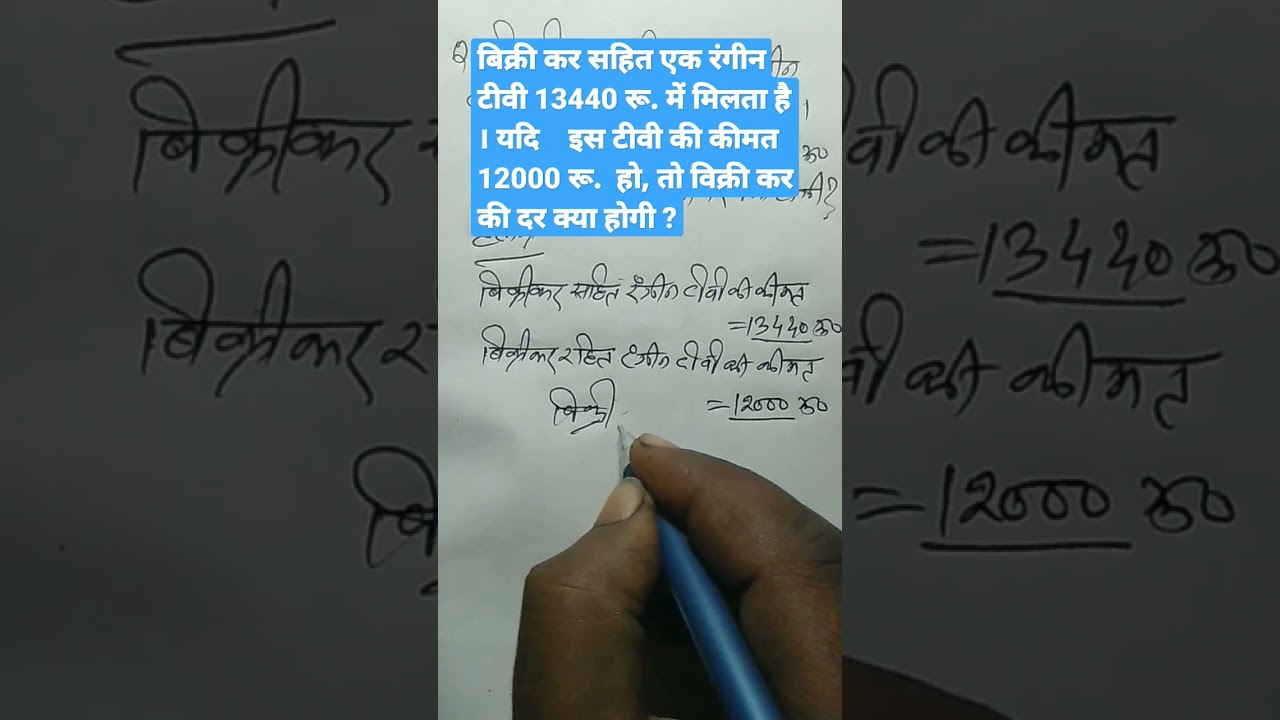 बिक्री कर सहित एक रंगीन
टीवी 13440 रू. में मिलता है
। यदि इस टीवी की कीमत
12000 रू. हो, तो विक्री कर
की दर क्या होगी ?
बिक्रीकर सहित रंगीन टीवी की कीमत
=13440 रू०
बिक्रीकर रहित रंगीन टीवी की कीमत
=12000 रू०
बिक्री